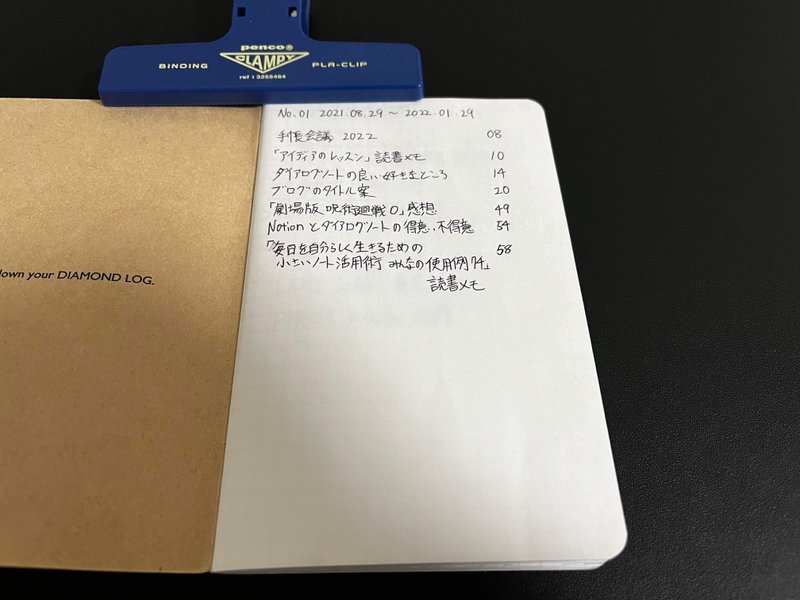 penco®
CLAMPY
BINDING PLA-CLIP
ref : 3255464
down your DIAMOND LOG.
No.01 2021.08.29 ~ 2022.01.29
手帳会議 2022 08
「アイディアのレッスン」読書メモ 10
ダイアログノートの良い好きなところ 14
ブログのタイトル案 20
「劇場版 呪術廻戦0」感想 49
Notionとダイアログノートの得意、不得意 54
「毎日を自分らしく生きるための 58
小さいノート活用術 みんなの使用例74」
読書メモ